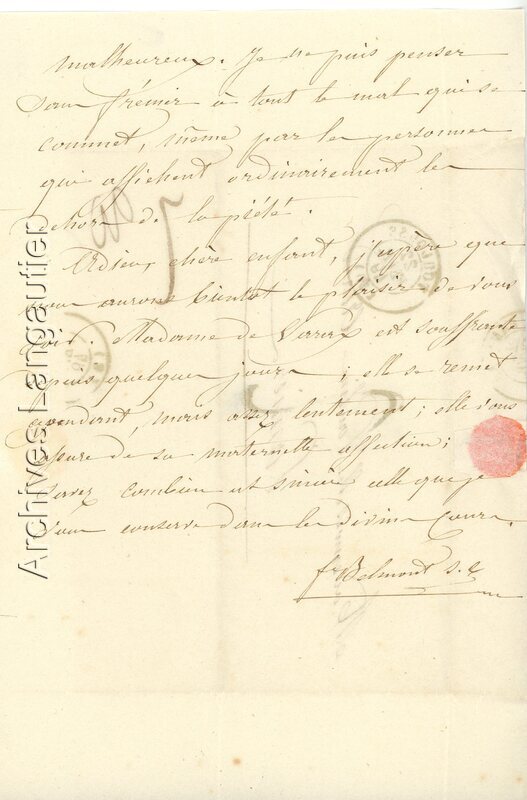 malheureux. Je ne puis penser
sans frémir à tout le mal qui se
commet, même par les personnes
qui affichent ordinairement les
dehors de la piété.
Adieu, chère enfant, j'espère que
nous aurons bientôt le plaisir de vous
voir. Madame de est souffrante
depuis quelques jours; elle se remet
cependant, mais assez lentement; elle vous
assure de sa maternelle affection;
savez combien est sincère celle que je
vous conserve dans les divins Cœurs.
fr Belmont s.
Archives Langautier